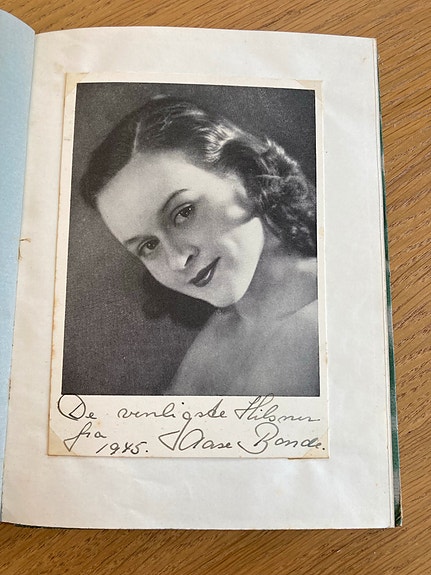 De venligste Hilsner
fra
1945. Aase Bonde.